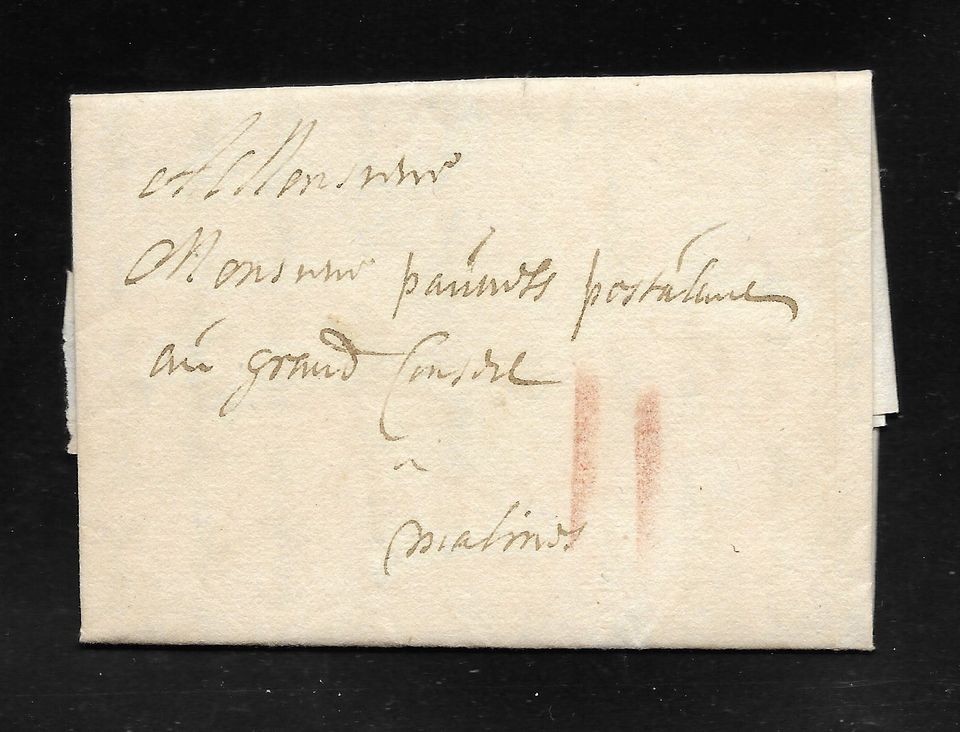 A Monsieur
Monsieur pauwels postulant
au grand Conseil
a
malines